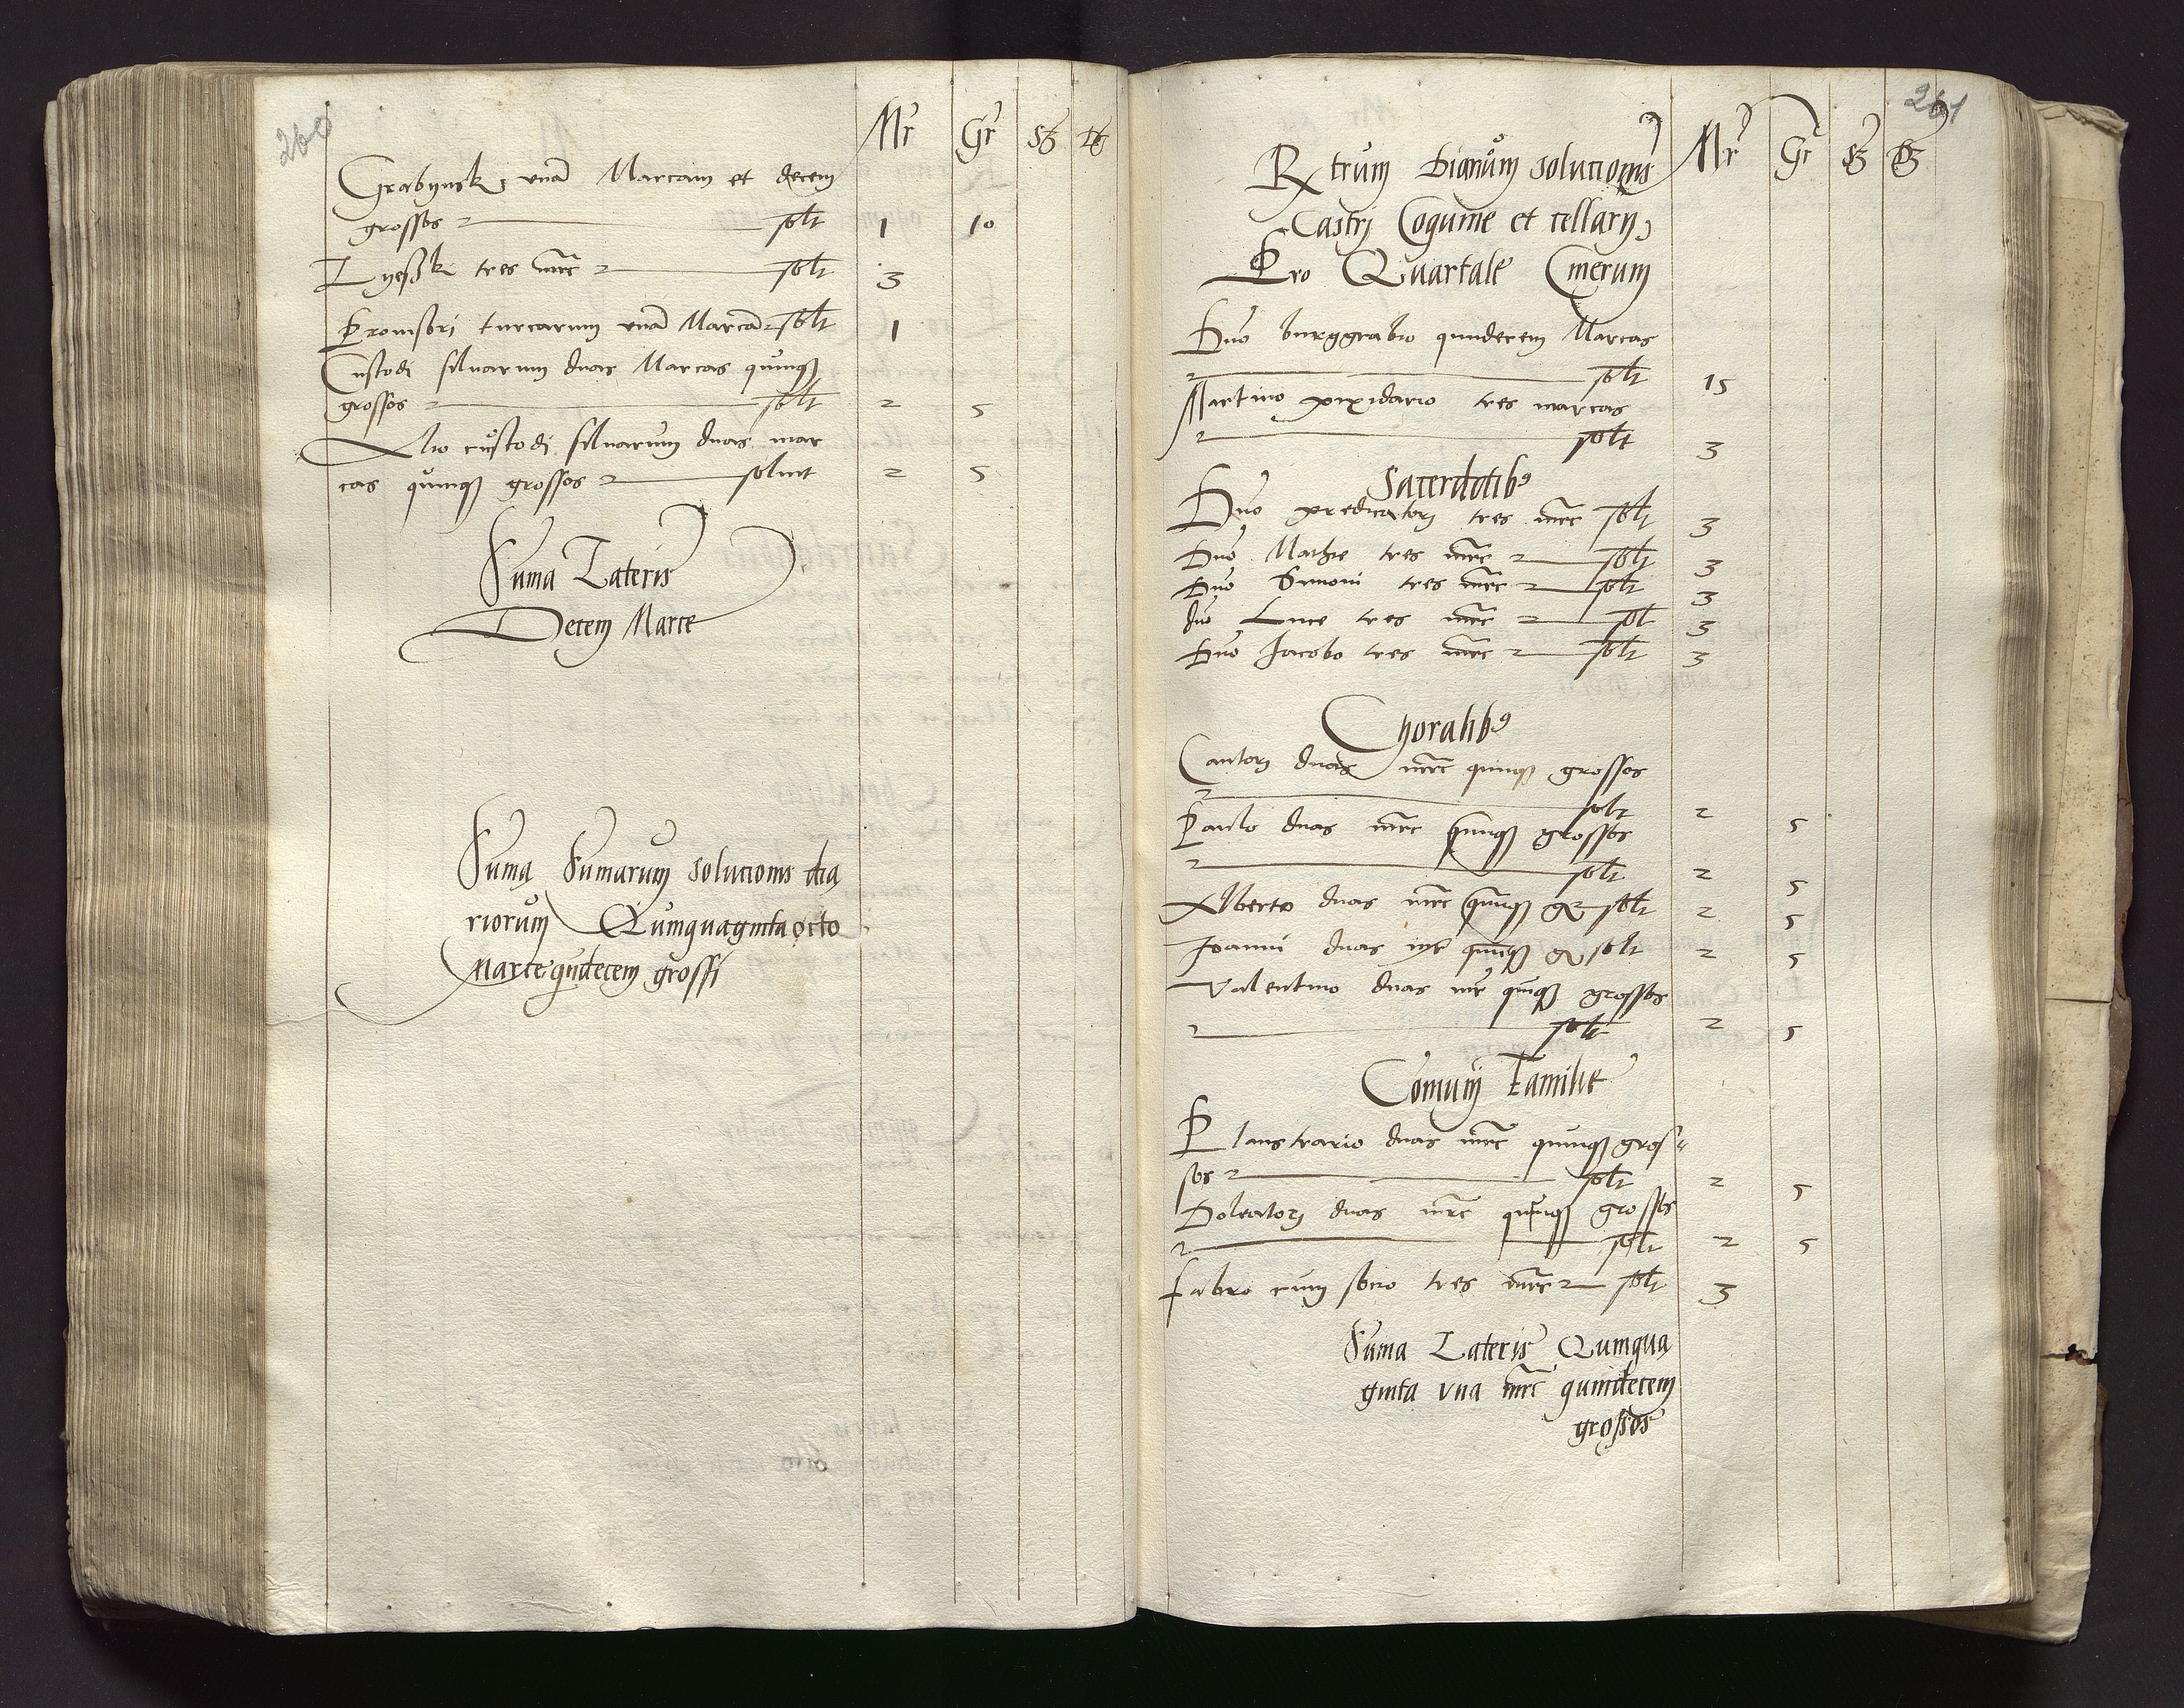 260
Mr Gr
Grabynsky unā Marcam et decem
grossos solt 1 10
Lyeßki tres mrc solt 3
Provisori turcarum unā Marcā solt 1
Custodi silvarum duas Marcas quinqʒ
grossos solt 2 5
Alio custodi silvarum duas mar
cas quinqʒ grossos solvit 2 5
Suma Lateris
Decem Marce
Suma Sumarum solucionis dia
riorum Quinquaginta octo
Marce qndecem grossi
261
Mr Gr
Rx trium solucionis
Castri Coquine et cellarij
Pro Quartale Cinerum
Dno burggrabio quindecem Marcas
solt 15
Martino pixidario tres marcas
solt 3
Sacerdotibꝰ
Dno predicatori tres mrc solt 3
Dno Mathie tres mrc solt 3
Dno Simoni tres mrc solt 3
dno Luce tres mrc sol 3
Dno Jacobo tres mrc solt 3
Choralibꝰ
Cantori duas mrc quinqʒ grossos
solt 2 5
Paulo duas mrc quinqʒ grossos
solt 2 5
Alberto duas mrc quinqʒ gr solt 2 5
Joanni duas mr quinqʒ gr solt 2 5
Valentino duas mr quinqʒ grossos
solt 2 5
Comuni Familie
Plaustrario duas mrc quinqʒ gros
sos solt 2 5
Doleatori duas mrc quinqʒ grossos
solt 2 5
Fabro cum socio tres mrc solt 3
Suma Lateris Quinqua
ginta una mrc quindecem
grossos